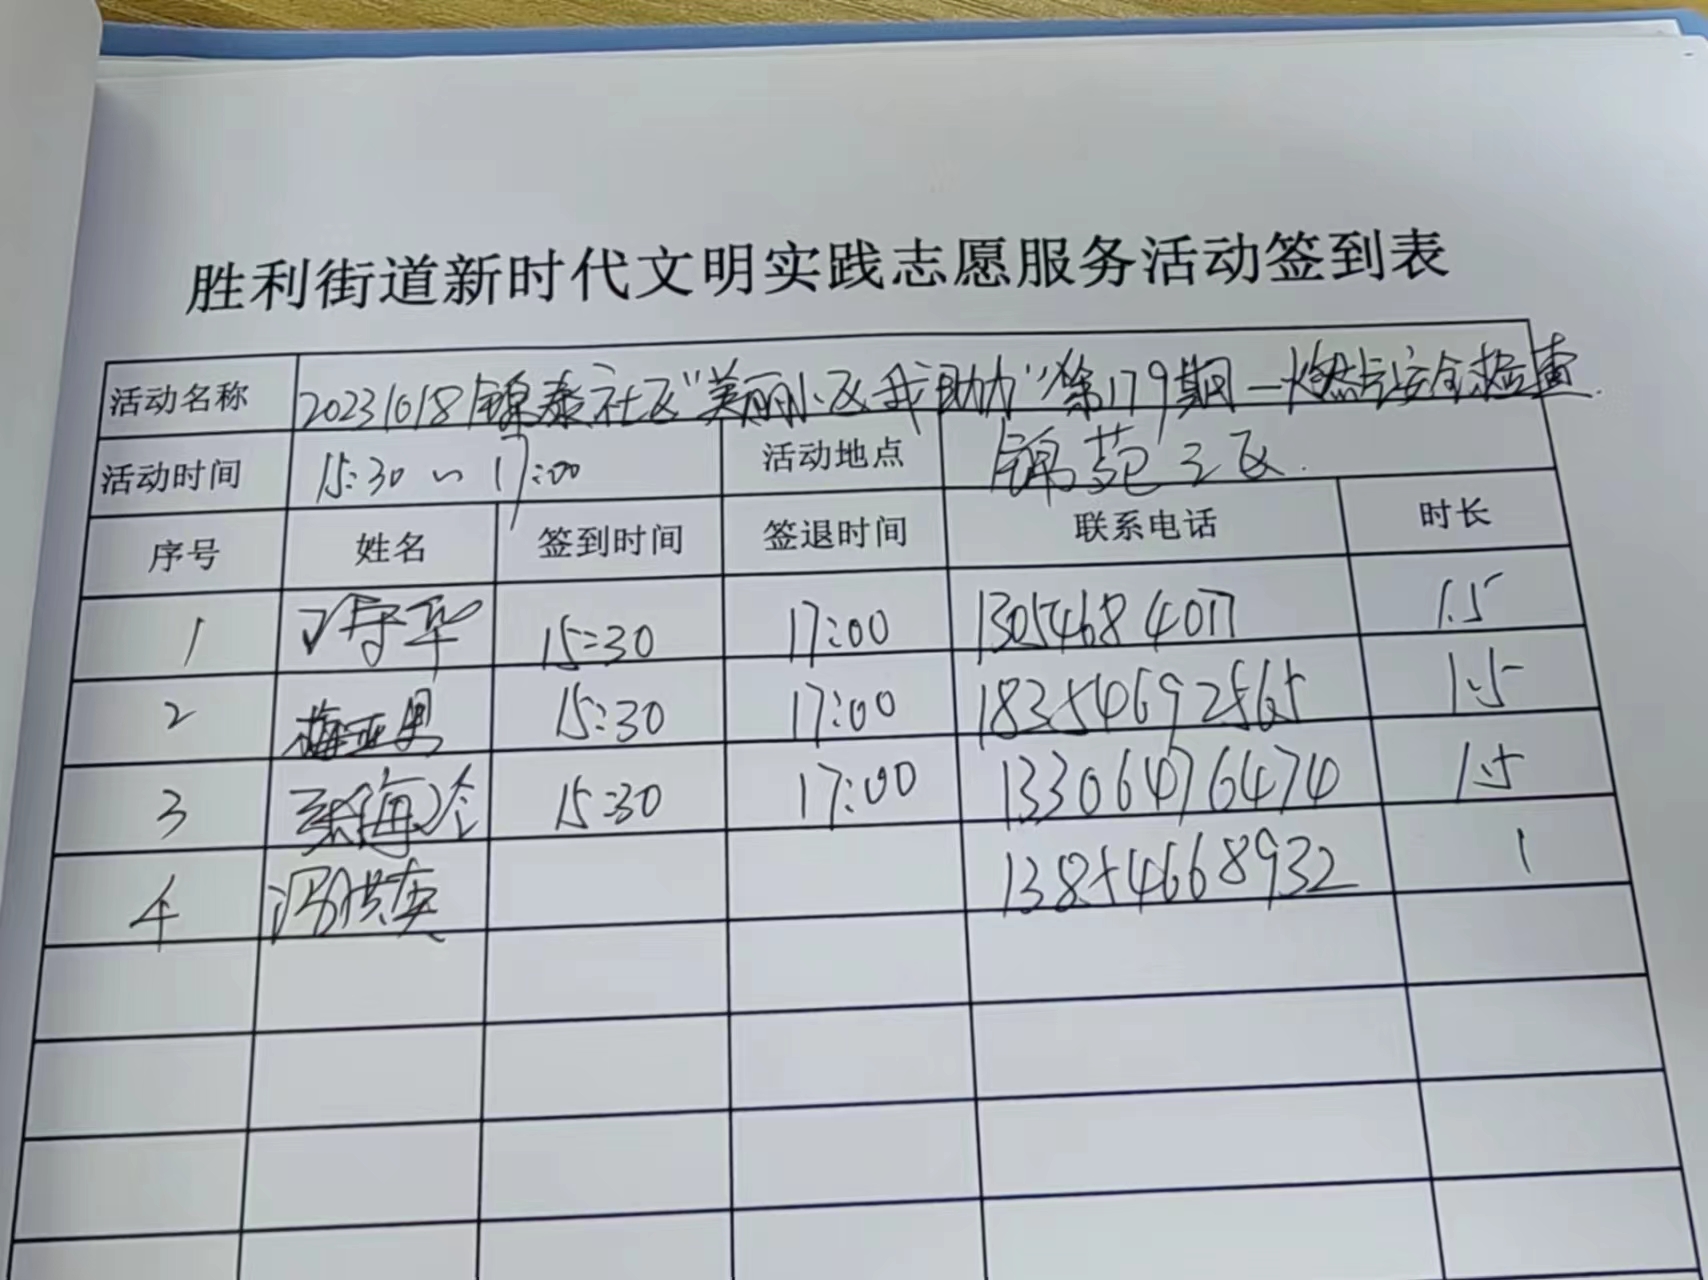 胜利街道新时代文明实践志愿服务活动签到表
活动名称 20231018锦泰社区"美丽小区我助力"第179期—燃气安全检查.
活动时间 15:30~17:00 活动地点 锦苑三区.
序号 姓名 签到时间 签退时间 联系电话 时长
1 15:30 17:00 13054684077 1.5
2 梅亚男 15:30 17:00 18354692565 1.5
3 张海冷 15:30 17:00 13306476474 1.5
4 冯洪英 13854668932 1